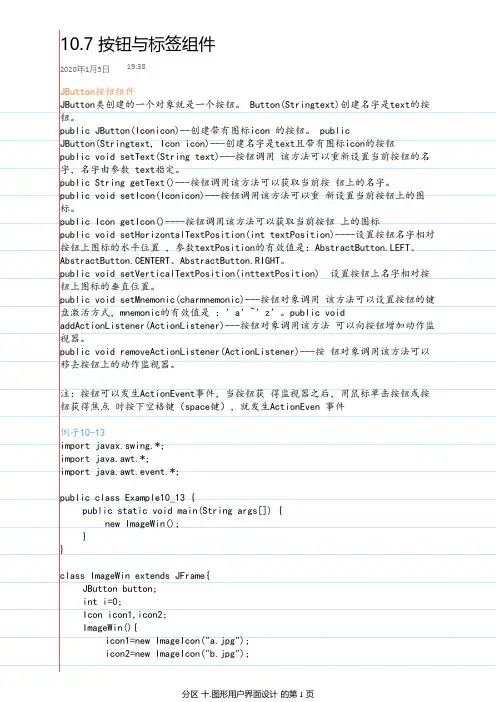 10.7 按钮与标签组件
2020年1月5日 19:38
JButton按钮组件
JButton类创建的一个对象就是一个按钮。 Button(Stringtext)创建名字是text的按
钮。
public JButton(Iconicon)--创建带有图标icon 的按钮。 public
JButton(Stringtext, Icon icon)---创建名字是text且带有图标icon的按钮
public void setText(String text)---按钮调用 该方法可以重新设置当前按钮的名
字, 名字由参数 text指定。
public String getText()---按钮调用该方法可以获取当前按 钮上的名字。
public void setIcon(Iconicon)---按钮调用该方法可以重 新设置当前按钮上的图
标。
public Icon getIcon()----按钮调用该方法可以获取当前按钮 上的图标
public void setHorizontalTextPosition(int textPosition)----设置按钮名字相对
按钮上图标的水平位置 , 参数textPosition的有效值是: AbstractButton.LEFT、
AbstractButton.CENTERT、AbstractButton.RIGHT。
public void setVerticalTextPosition(inttextPosition) 设置按钮上名字相对按
钮上图标的垂直位置。
public void setMnemonic(charmnemonic)---按钮对象调用 该方法可以设置按钮的键
盘激活方式, mnemonic的有效值是 : ’a’~’z’。public void
addActionListener(ActionListener)---按钮对象调用该方法 可以向按钮增加动作监
视器。
public void removeActionListener(ActionListener)---按 钮对象调用该方法可以
移去按钮上的动作监视器。
注: 按钮可以发生ActionEvent事件, 当按钮获 得监视器之后, 用鼠标单击按钮或按
钮获得焦点 时按下空格键 (space键) , 就发生ActionEven 事件
例子10-13
import javax.swing.*;
import java.awt.*;
import java.awt.event.*;
public class Example10_13 {
public static void main(String args[]) {
new ImageWin();
}
}
class ImageWin extends JFrame{
JButton button;
int i=0;
Icon icon1,icon2;
ImageWin(){
icon1=new ImageIcon("a.jpg");
icon2=new ImageIcon("b.jpg");
分区 十.图形用户界面设计 的第 1 页